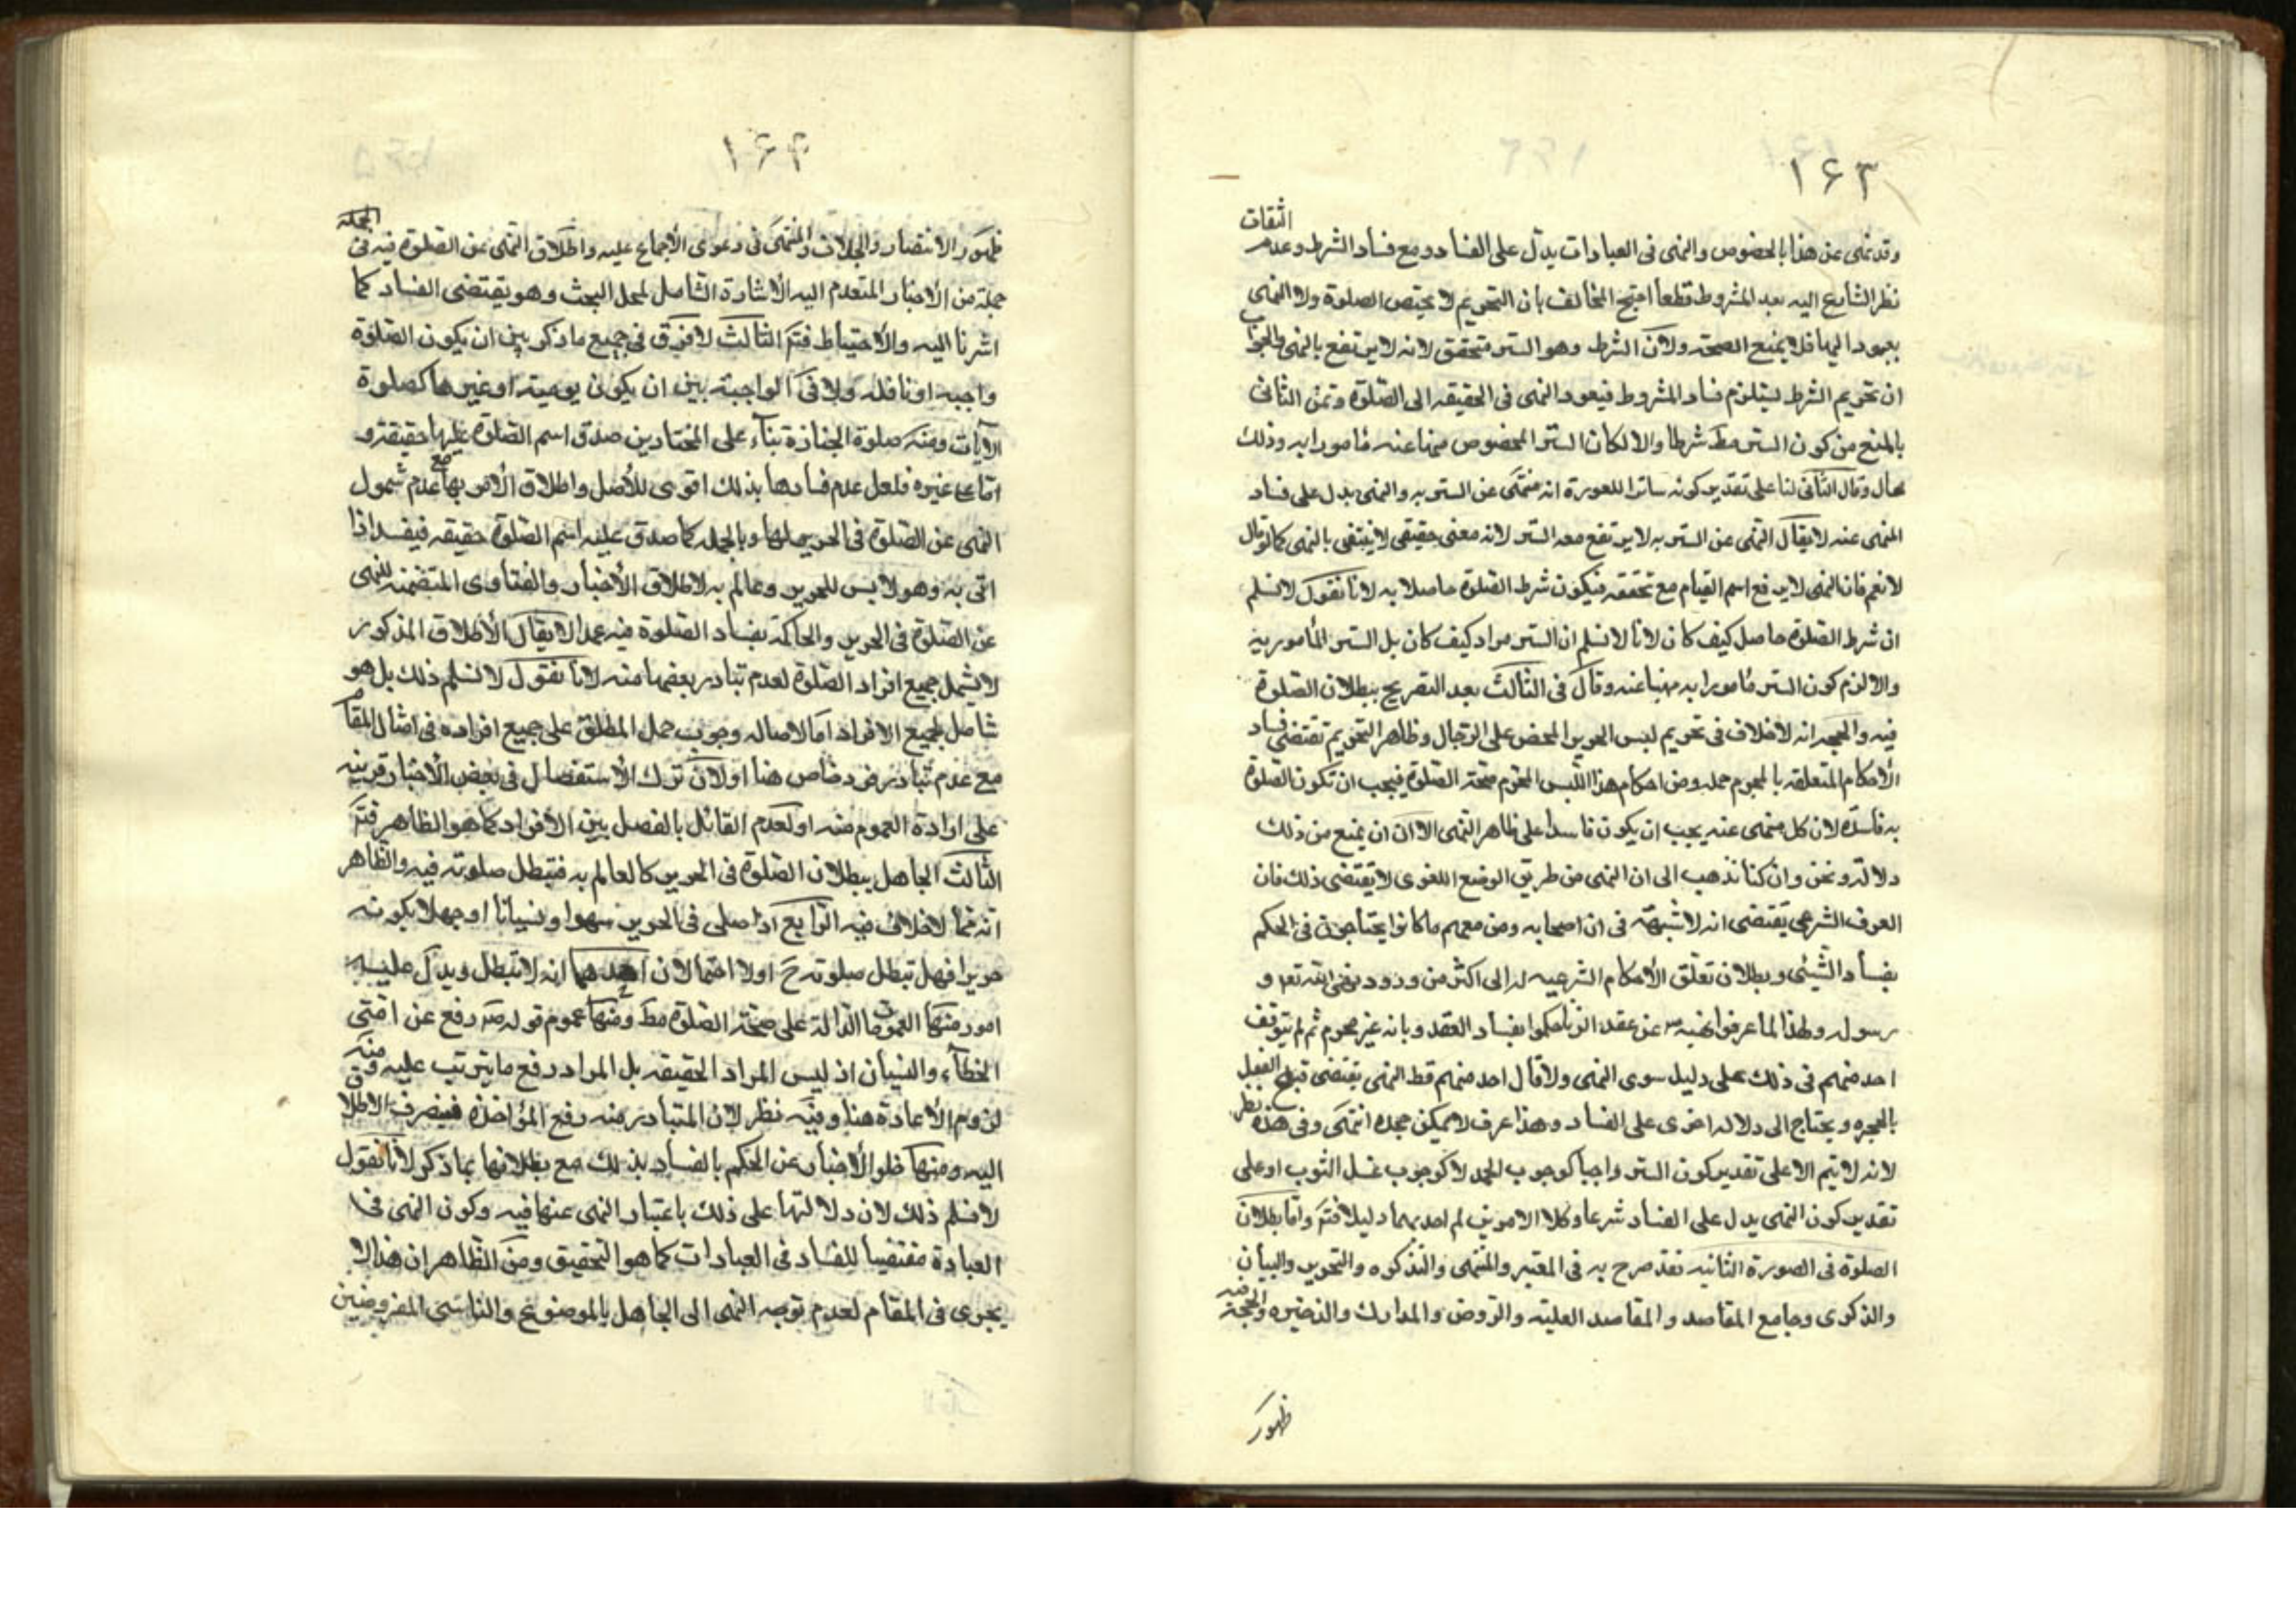 ١۶٣
الثقات
وقد نهى عن هذا بالخصوص والنهى فى العبادات يدل على الفساد ومع فساد الشرط وعدم
نظر الشارع اليه بعد المشروط قطعا احتج المخالف بان التحريم لا يختص الصلوة ولا النهى
يعود اليها فلا يمنع الصحة ولان الشرط وهو الستر متحقق لانه لا يرتفع بالنهى والجواب
ان تحريم الشرط يستلزم فساد المشروط فيعود النهى فى الحقيقه الى الصلوة وعن الثانى
بالمنع من كون الستر مط شرطا والا لكان الستر المخصوص منهيا عنه مامورا به وذلك
محال وقال الثانى لنا على تقدير كونه ساترا للعورة انه منهى عن الستر به والنهى يدل على فساد
المنهى عنه لا يقال النهى عن الستر به لا يرتفع معه الستر لانه معنى حقيقى لا ينتفى بالنهى كما لو قال
لا تقم فان النهى لا يرفع اسم القيام مع تحققه فيكون شرط الصلوة حاصلا به لانا نقول لا نسلم
ان شرط الصلوة حاصل كيف كان لانا لا نسلم ان الستر مراد كيف كان بل الستر المأمور به
والا لزم كون الستر مامورا به منهيا عنه وقال فى الثالث بعد التصريح ببطلان الصلوة
فيه والحجه انه لا خلاف فى تحريم لبس الحرير المحض على الرجال وظاهر التحريم تقتضى فساد
الأحكام المتعلقه بالمحرم جمله ومن احكام هذا اللبس المحرم صحة الصلوة فيجب ان تكون الصلوة
به فاسدة لان كل منهى عنه يجب ان يكون فاسدا على ظاهر النهى الا ان يمنع من ذلك
دلالة ونحن وان كنا نذهب الى ان النهى من طريق الوضع اللغوى لا يقتضى ذلك فان
العرف الشرعى يقتضى انه لا شبهة فى ان اصحابه ومن معهم ما كانوا يحتاجون فى الحكم
بفساد الشيئى وبطلان تعلق الأحكام الشرعيه له الى اكثر من ورود نهى الله تعه و
رسوله ولهذا لما عرفوا نهيه عن عقد الربا حكموا بفساد العقد وبانه غير محرم ثم لم يتوقف
احد منهم فى ذلك على دليل سوى النهى ولا قال احد منهم قط النهى يقتضى قبح الفعل
بالمجره ويحتاج الى دلاله اخرى على الفساد وهذا عرف لا يمكن جحده انتهى وفى هذه نظر
لانه لا يتم الا على تقدير كون الستر واجبا كوجوب الحمد لا كوجوب غسل الثوب او على
تقدير كون النهى يدل على الفساد شرعا وكلا الامرين لم اجد بهما دليلا فتم واما بطلان
الصلوة فى الصورة الثانيه فقد صرح به فى المعتبر والمنتهى والتذكره والتحرير والبيان
والذكرى وجامع المقاصد والمقاصد العلية والروض والمدارك والذخيره والحجة
ظهور
١۶۴
ظهور الانتصار والخلاف والمنتهى فى دعوى الأجماع عليه واطلاق النهى عن الصلوة فيه فى
جملة من الأخبار المتقدم اليه الأشارة الشامل لمحل البحث وهو يقتضى الفساد كما
اشرنا اليه والأحتياط فتم الثالث لا فرق فى جميع ما ذكر بين ان يكون الصلوة
واجبه او نافله ولا فى الواجبة بين ان يكون يوميه او غيرها كصلوة
الآيات ومنه صلوة الجنازة بناء على المختار من صدق اسم الصلوة عليها حقيقة و
اما على غيره فلعل عدم فسادها بذلك اقوى للأصل واطلاق الأمر بها مع عدم شمول
النهى عن الصلوة فى الحرير لها وبالجمله كلما صدق عليه اسم الصلوة حقيقه فيفسد اذا
اتى به وهو لابس للحرير وعالم به لاطلاق الأخبار والفتاوى المتضمنه للنهى
عن الصلوة فى الحرير والحاكمة بفساد الصلوة فيه عمدا لا يقال الأطلاق المذكور
لا يشمل جميع افراد الصلوة لعدم تبادر بعضها منه لانا نقول لا نسلم ذلك بل هو
شامل لجميع الافراد اما لاصاله وجوب حمل المطلق على جميع افراده فى امثال المقام
مع عدم تبادر فرد خاص هنا او لان ترك الأستفصال فى بعض الأخبار قرينه
على ارادة العموم منه او لعدم القائل بالفصل بين الأفراد كما هو الظاهر فتم
الثالث الجاهل ببطلان الصلوة فى الحرير كالعالم به فتبطل صلوته فيه والظاهر
انه مما لا خلاف فيه الرابع اذا صلى فى الحرير سهوا او نسيانا او جهلا بكونه
حريرا فهل تبطل صلوته ح اولا احتمالان احدهما انه لا تبطل ويدل عليه
امور منها العمومات الدالة على صحة الصلوة مط ومنها عموم قوله ص رفع عن امتى
الخطأ والنسيان اذ ليس المراد الحقيقه بل المراد رفع ما يترتب عليه ومنه
لزوم الأعادة هنا وفيه نظر لان المتبادر منه رفع المؤاخذه فينصرف الاطلاق
اليه ومنها خلو الأخبار عن الحكم بالفساد بذلك مع بطلانها بما ذكر لانا نقول
لا نسلم ذلك لان دلالتها على ذلك باعتبار النهى عنها فيه وكون النهى فى
العبادة مقتضيا للفساد فى العبادات كما هو التحقيق ومن الظاهر ان هذا لا
يجرى فى المقام لعدم توجه النهى الى الجاهل بالموضوع والناسى المفروضين